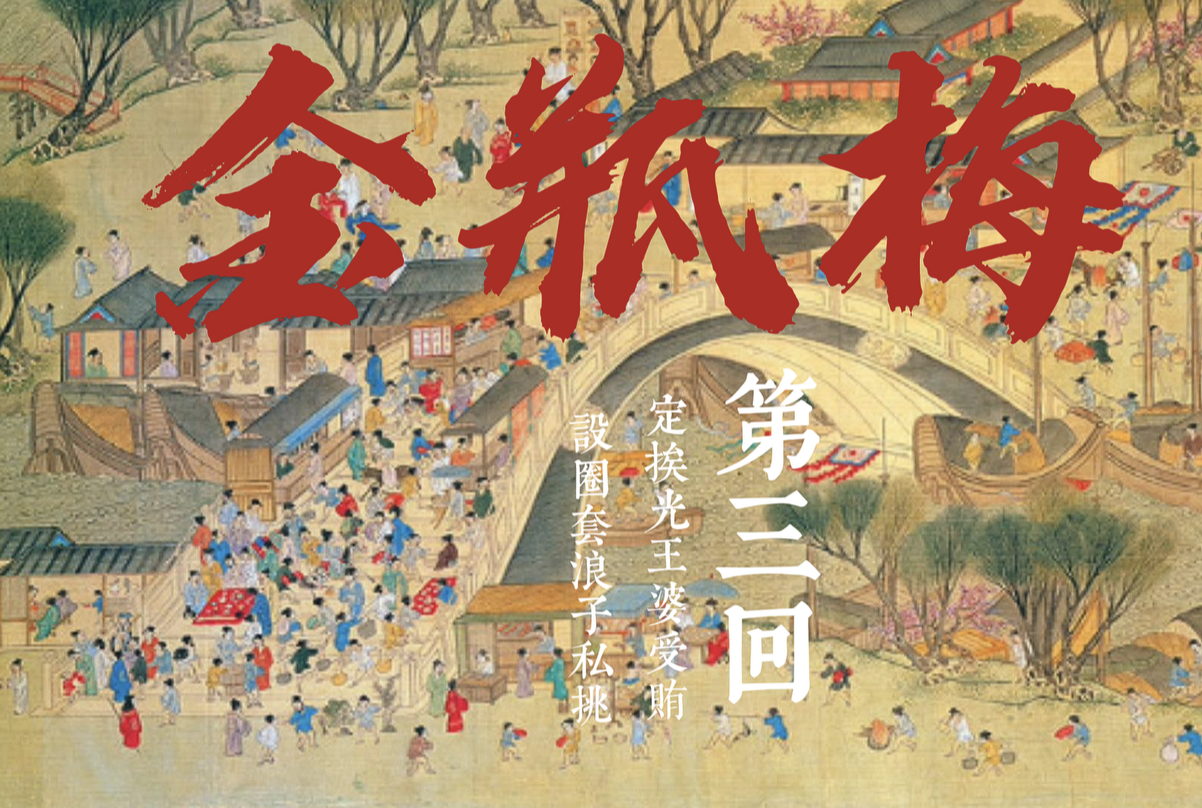 金瓶梅
第三回
定挨光王婆受賄
設圈套浪子私挑